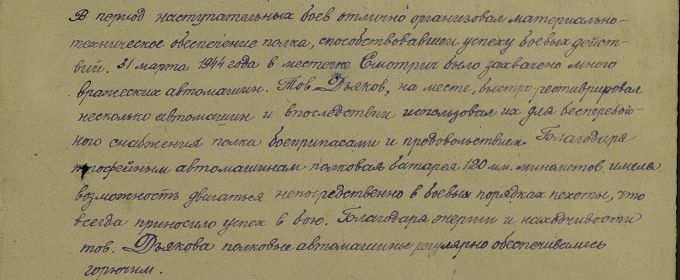 В период наступательных боев отлично организовал материально-
техническое обеспечение полка, способствовавшей успеху боевых дейст-
вий. 31 марта 1944 года в местечке Смотрич было захвачено много
вражеских автомашин. Тов. Дьяков, на месте, быстро реставрировал
несколько автомашин и впоследствии использовал их для бесперебой-
ного снабжения полка боеприпасами и продовольствием. Благодаря
трофейным автомашинам полковая батарея 120 мм. минометов, имела
возможность двигаться непосредственно в боевых порядках пехоты, что
всегда приносило успех в бою. Благодаря энергии и находчивости
тов. Дьякова полковые автомашины регулярно обеспечивались
горючим.